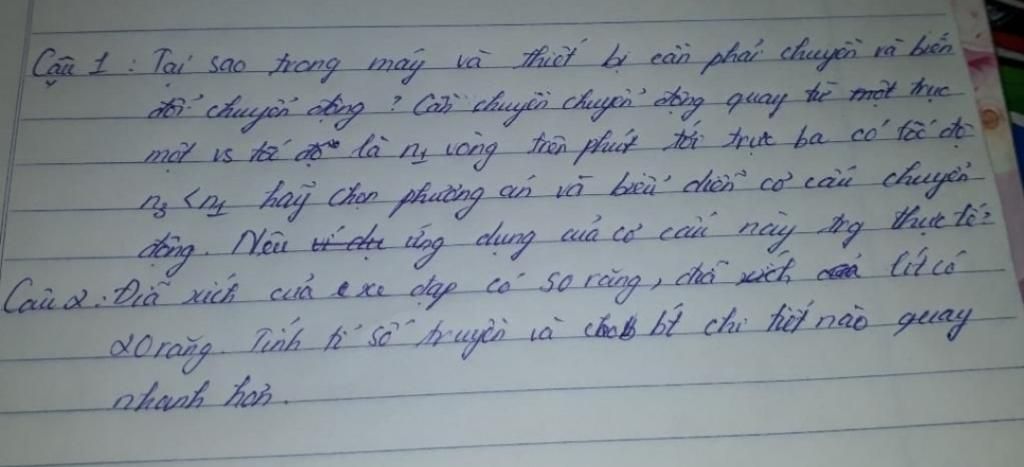 Câu 1: Tại sao trong máy và thiết bị cần phải chuyền và biến
đổi chuyển động? Cần chuyền chuyển động quay từ một trục
một vs tốc độ là n1 vòng trên phút tới trục ba có tốc độ
n3 < n1 hãy chọn phương án và biểu diễn cơ cấu chuyển
động. Nêu ví dụ ứng dụng của cơ cấu này trg thực tế?
Câu 2: Đĩa xích của xe đạp có 50 răng, đĩa líp có
20 răng. Tính tỉ số truyền và bt chi tiết nào quay
nhanh hơn.